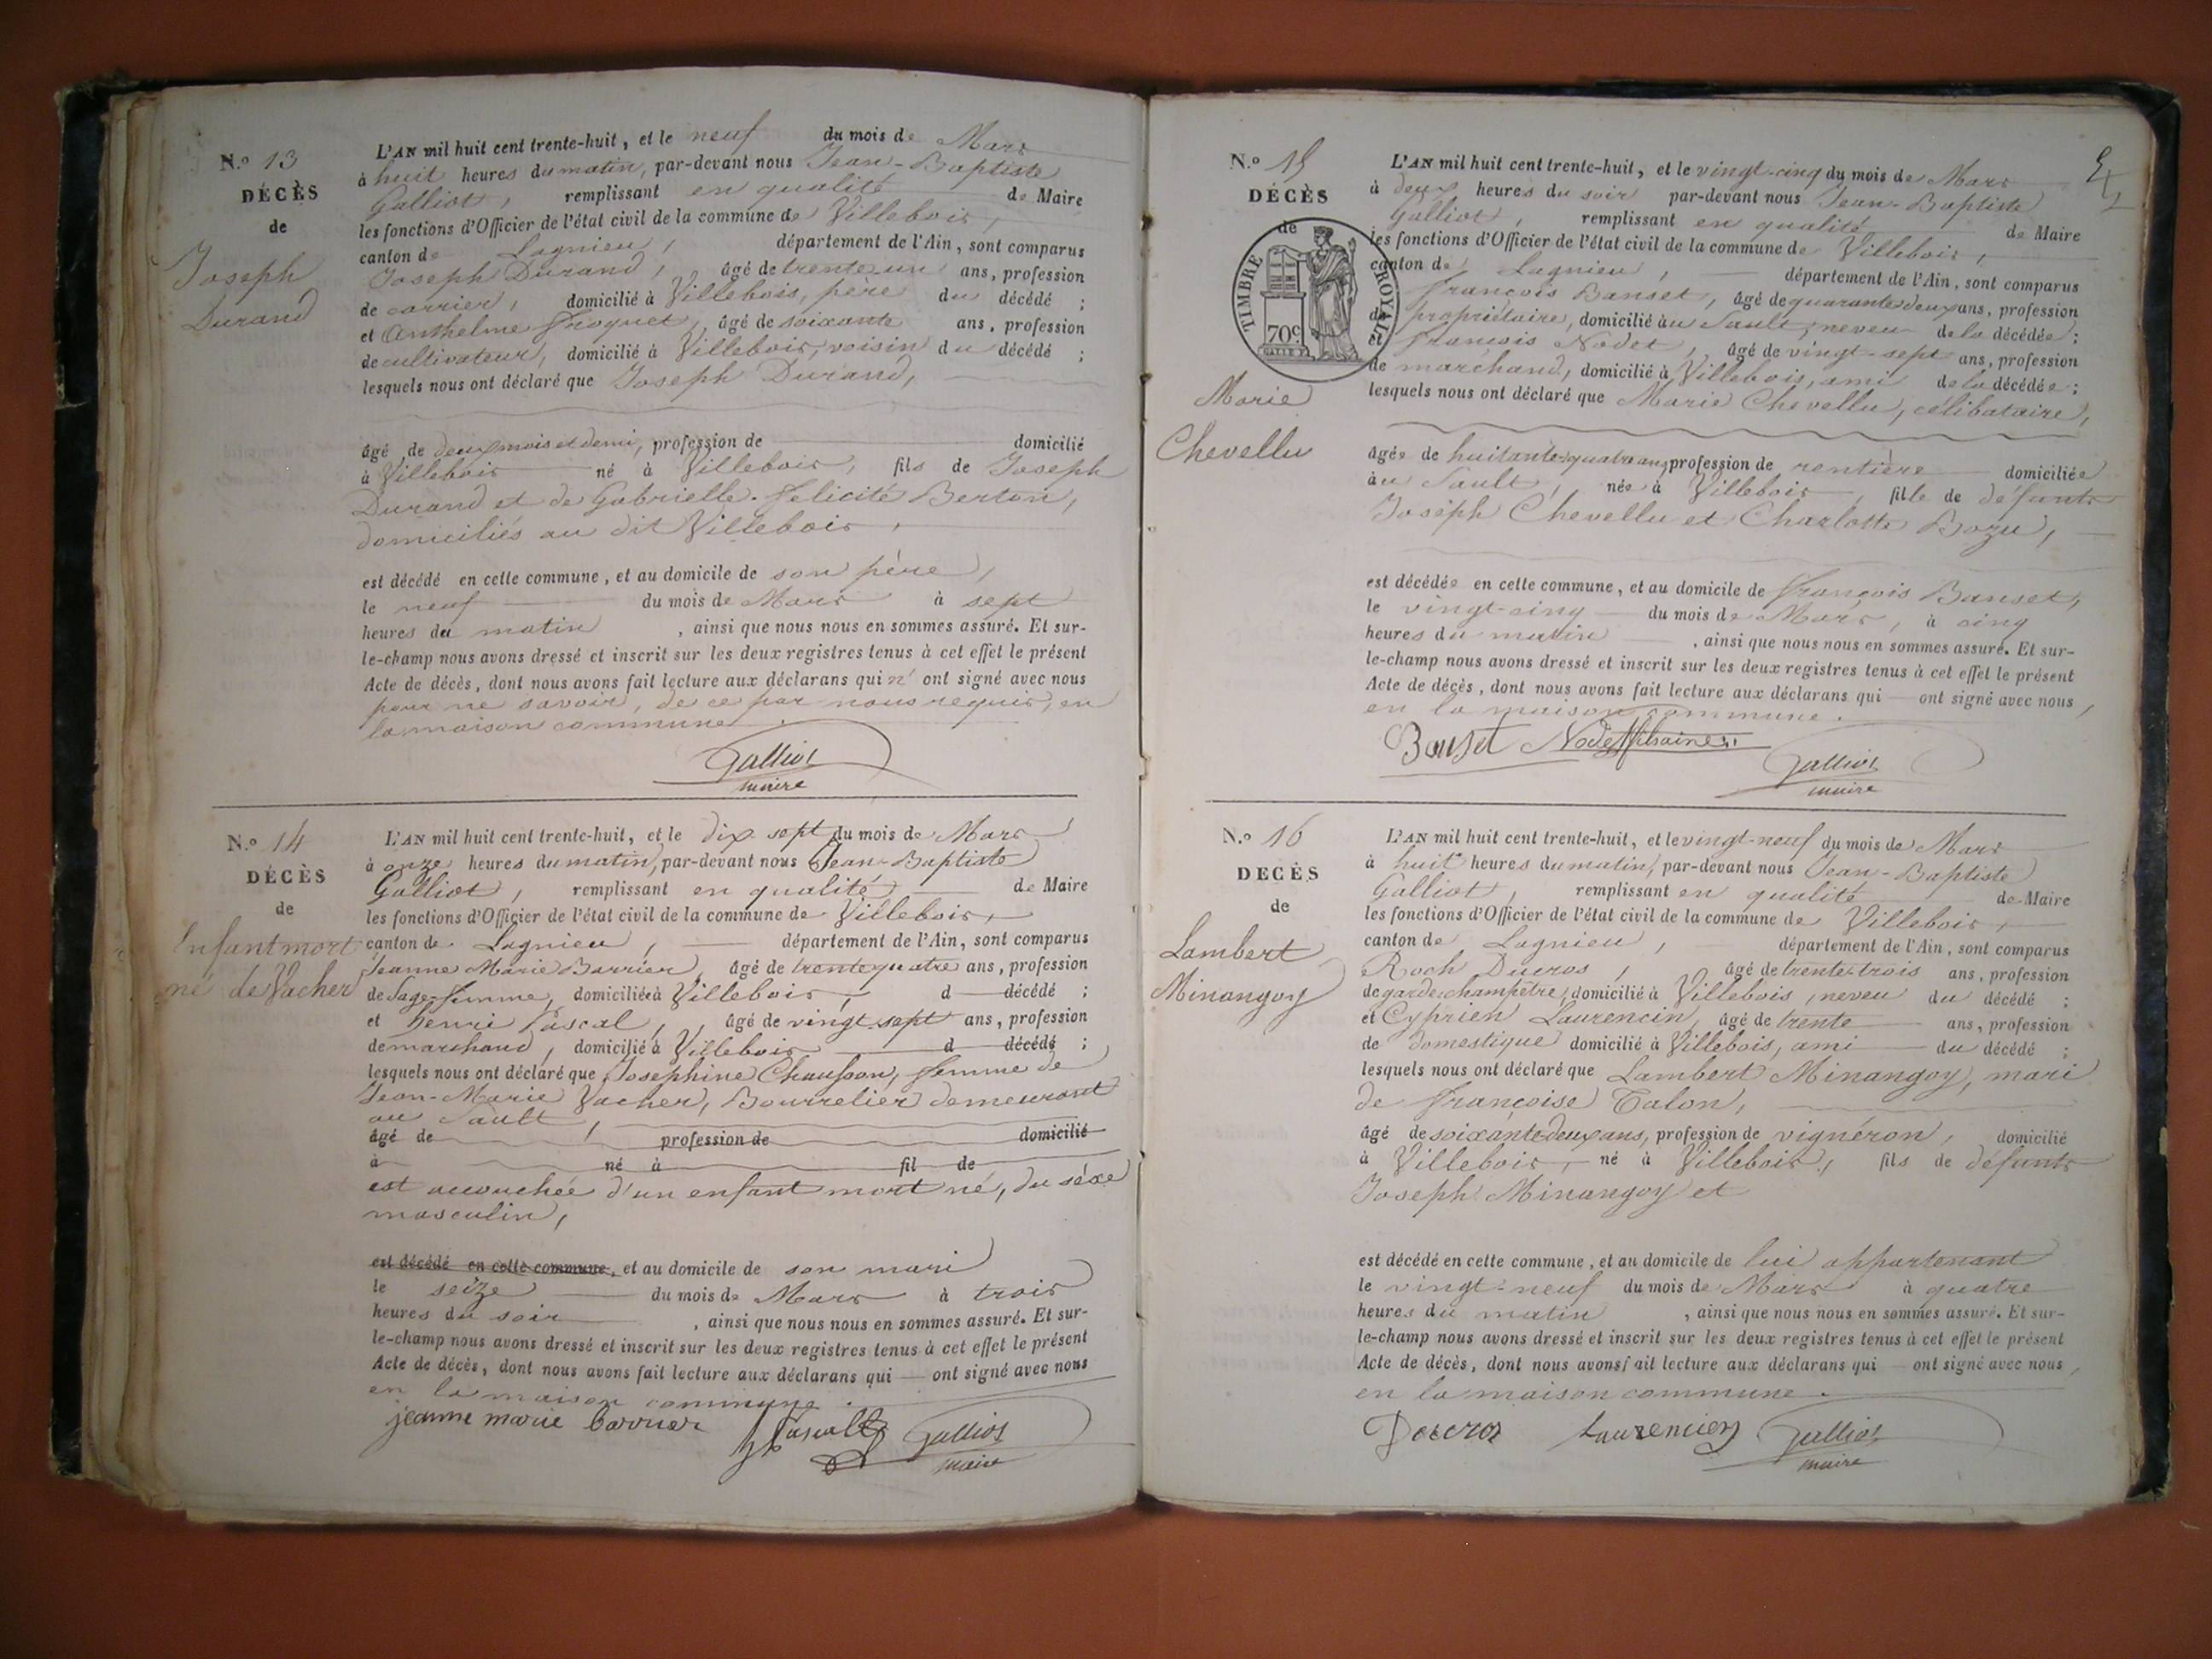 N.o 13
DÉCÈS
de
Joseph
Durand
L'AN mil huit cent trente-huit, et le neuf du mois de Mars
à huit heures du matin, par-devant nous Jean-Baptiste
Galliot, remplissant en qualité de Maire
les fonctions d'Officier de l'état civil de la commune de Villebois,
canton de Lagnieu, département de l'Ain, sont comparus
Joseph Durand, âgé de trente-un ans, profession
de carrier, domicilié à Villebois, père du décédé ;
et Anthelme Froquet, âgé de soixante ans, profession
de cultivateur, domicilié à Villebois, voisin du décédé ;
lesquels nous ont déclaré que Joseph Durand,
âgé de deux mois et demi, profession de domicilié
à Villebois né à Villebois, fils de Joseph
Durand et de Gabrielle-Félicité Berton,
domiciliés au dit Villebois,
est décédé en cette commune, et au domicile de son père,
le neuf du mois de Mars à sept
heures du matin, ainsi que nous nous en sommes assuré. Et sur-
le-champ nous avons dressé et inscrit sur les deux registres tenus à cet effet le présent
Acte de décès, dont nous avons fait lecture aux déclarans qui n' ont signé avec nous
pour ne savoir, de ce par nous requis, en
la maison commune.
Galliot
maire
N.o 14
DÉCÈS
de
Enfant mort
né de Vacher
L'AN mil huit cent trente-huit, et le dix sept du mois de Mars
à onze heures du matin, par-devant nous Jean-Baptiste
Galliot, remplissant en qualité de Maire
les fonctions d'Officier de l'état civil de la commune de Villebois,
canton de Lagnieu, département de l'Ain, sont comparus
Jeanne Marie Barrier, âgé de trente quatre ans, profession
de Sage-femme, domiciliée à Villebois, d décédé ;
et henri Pascal, âgé de vingt sept ans, profession
de marchand, domicilié à Villebois d décédé ;
lesquels nous ont déclaré que Josephine Chausson, femme de
Jean-Marie Vacher, Bourrelier demeurant
au Sault,
âgé de profession de domicilié
à né à fil de
est accouchée d'un enfant mort né, du séxe
masculin,
est décédé en cette commune, et au domicile de son mari
le seize du mois de Mars à trois
heures du soir, ainsi que nous nous en sommes assuré. Et sur-
le-champ nous avons dressé et inscrit sur les deux registres tenus à cet effet le présent
Acte de décès, dont nous avons fait lecture aux déclarans qui ont signé avec nous
en la maison commune.
jeanne marie barrier Galliot
maire
N.o 15
DÉCÈS
de
TIMBRE ROYAL
70c
Marie
Chevellu
L'AN mil huit cent trente-huit, et le vingt-cinq du mois de Mars
à deux heures du soir par-devant nous Jean-Baptiste
Galliot, remplissant en qualité de Maire
les fonctions d'Officier de l'état civil de la commune de Villebois,
canton de Lagnieu, département de l'Ain, sont comparus
François Banset, âgé de quarante deux ans, profession
de propriétaire, domicilié au Sault, neveu de la décédée ;
et François Nodet, âgé de vingt-sept ans, profession
de marchand, domicilié à Villebois, ami de la décédée ;
lesquels nous ont déclaré que Marie Chevellu, célibataire,
âgée de huitante-quatre ans, profession de rentière domiciliée
au Sault, née à Villebois, fille de défunts
Joseph Chevellu et Charlotte Bozu,
est décédée en cette commune, et au domicile de François Banset,
le vingt-cinq du mois de Mars, à cinq
heures du matin, ainsi que nous nous en sommes assuré. Et sur-
le-champ nous avons dressé et inscrit sur les deux registres tenus à cet effet le présent
Acte de décès, dont nous avons fait lecture aux déclarans qui ont signé avec nous,
en la maison commune.
Banset Nodet fils aîné
Galliot
maire
N.o 16
DÉCÈS
de
Lambert
Minangoy
L'AN mil huit cent trente-huit, et le vingt-neuf du mois de Mars
à huit heures du matin, par-devant nous Jean-Baptiste
Galliot, remplissant en qualité de Maire
les fonctions d'Officier de l'état civil de la commune de Villebois,
canton de Lagnieu, département de l'Ain, sont comparus
Roch Ducros, âgé de trente-trois ans, profession
de garde-champêtre, domicilié à Villebois, neveu du décédé ;
et Cyprien Laurencin, âgé de trente ans, profession
de domestique domicilié à Villebois, ami du décédé ;
lesquels nous ont déclaré que Lambert Minangoy, mari
de Françoise Talon,
âgé de soixante-deux ans, profession de vignéron, domicilié
à Villebois, né à Villebois, fils de défunts
Joseph Minangoy et
est décédé en cette commune, et au domicile de lui appartenant
le vingt-neuf du mois de Mars à quatre
heures du matin, ainsi que nous nous en sommes assuré. Et sur-
le-champ nous avons dressé et inscrit sur les deux registres tenus à cet effet le présent
Acte de décès, dont nous avons fait lecture aux déclarans qui ont signé avec nous,
en la maison commune.
Ducros Laurencin Galliot
maire